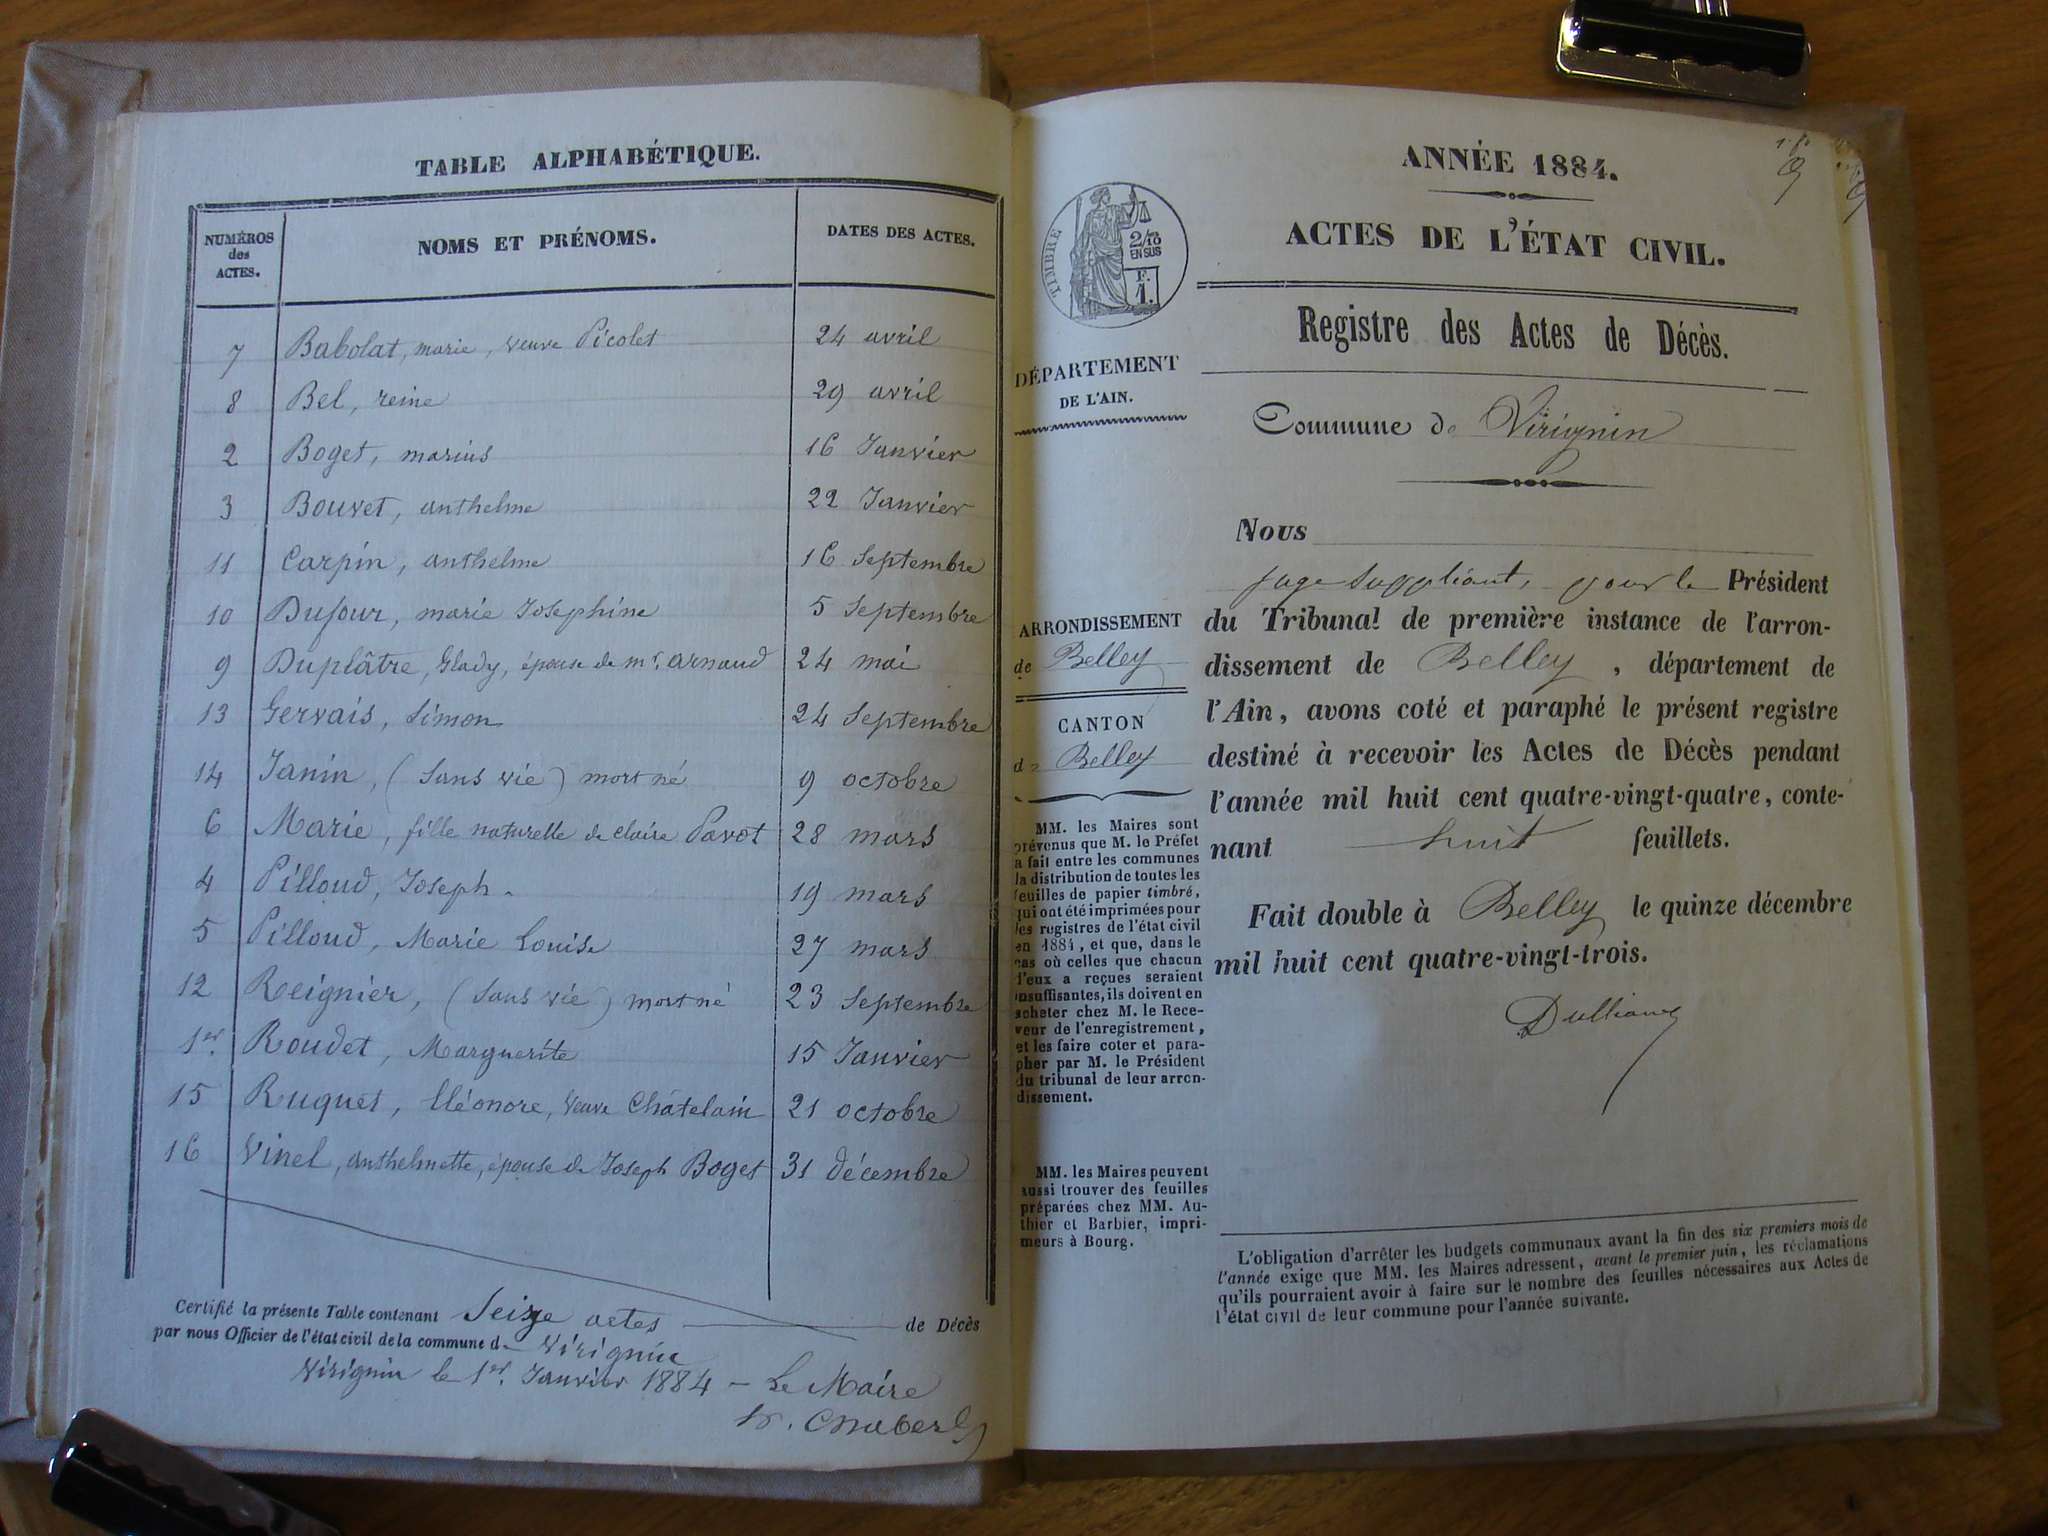 TABLE ALPHABÉTIQUE.
NUMÉROS des ACTES.
NOMS ET PRÉNOMS.
DATES DES ACTES.
7 Babolat, marie, veuve Picolet 24 avril
8 Bel, reine 29 avril
2 Boget, marius 16 Janvier
3 Bouvet, anthelme 22 Janvier
11 Carpin, anthelme 16 Septembre
10 Dufour, marie Josephine 5 Septembre
9 Duplâtre, Glady, épouse de mr. arnaud 24 mai
13 Gervais, Simon 24 Septembre
14 Janin, (Sans vie) mort né 9 octobre
6 Marie, fille naturelle de claire Pavot 28 mars
4 Pilloud, Joseph. 19 mars
5 Pilloud, Marie Louise 27 mars
12 Reignier, (Sans vie) mort né 23 Septembre
1er. Roudet, Marguerite 15 Janvier
15 Ruguet, Eléonore, veuve Châtelain 21 octobre
16 Vinel, anthelmette, épouse de Joseph Boget 31 décembre
Certifié la présente Table contenant Seize actes de Décès
par nous Officier de l'état civil de la commune d. Virignin
Virignin le 1er. Janvier 1884 – Le Maire
ANNÉE 1884.
ACTES DE L'ÉTAT CIVIL.
Registre des Actes de Décès.
TIMBRE
2/10
EN SUS
F.
1.
DÉPARTEMENT
DE L'AIN.
Commune de Virignin
Nous
juge suppléant, pour le Président
du Tribunal de première instance de l'arron-
dissement de Belley, département de
l'Ain, avons coté et paraphé le présent registre
destiné à recevoir les Actes de Décès pendant
l'année mil huit cent quatre-vingt-quatre, conte-
nant huit feuillets.
Fait double à Belley le quinze décembre
mil huit cent quatre-vingt-trois.
ARRONDISSEMENT
de Belley
CANTON
de Belley
MM. les Maires sont
prévenus que M. le Préfet
a fait entre les communes
la distribution de toutes les
feuilles de papier timbré,
qui ont été imprimées pour
les registres de l'état civil
en 1884, et que, dans le
cas où celles que chacun
d'eux a reçues seraient
insuffisantes, ils doivent en
acheter chez M. le Rece-
veur de l'enregistrement,
et les faire coter et para-
pher par M. le Président
du tribunal de leur arron-
dissement.
MM. les Maires peuvent
aussi trouver des feuilles
préparées chez MM. Au-
thier et Barbier, impri-
meurs à Bourg.
L'obligation d'arrêter les budgets communaux avant la fin des six premiers mois de
l'année exige que MM. les Maires adressent, avant le premier juin, les réclamations
qu'ils pourraient avoir à faire sur le nombre des feuilles nécessaires aux Actes de
l'état civil de leur commune pour l'année suivante.